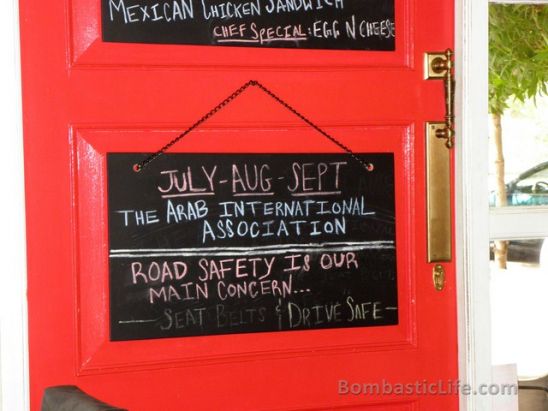 MEXICAN CHICKEN SANDWICH
CHEF SPECIAL: EGG N CHEESE
JULY-AUG-SEPT
THE ARAB INTERNATIONAL
ASSOCIATION
ROAD SAFETY IS OUR
MAIN CONCERN...
— SEAT BELTS & DRIVE SAFE —
BombasticLife.com